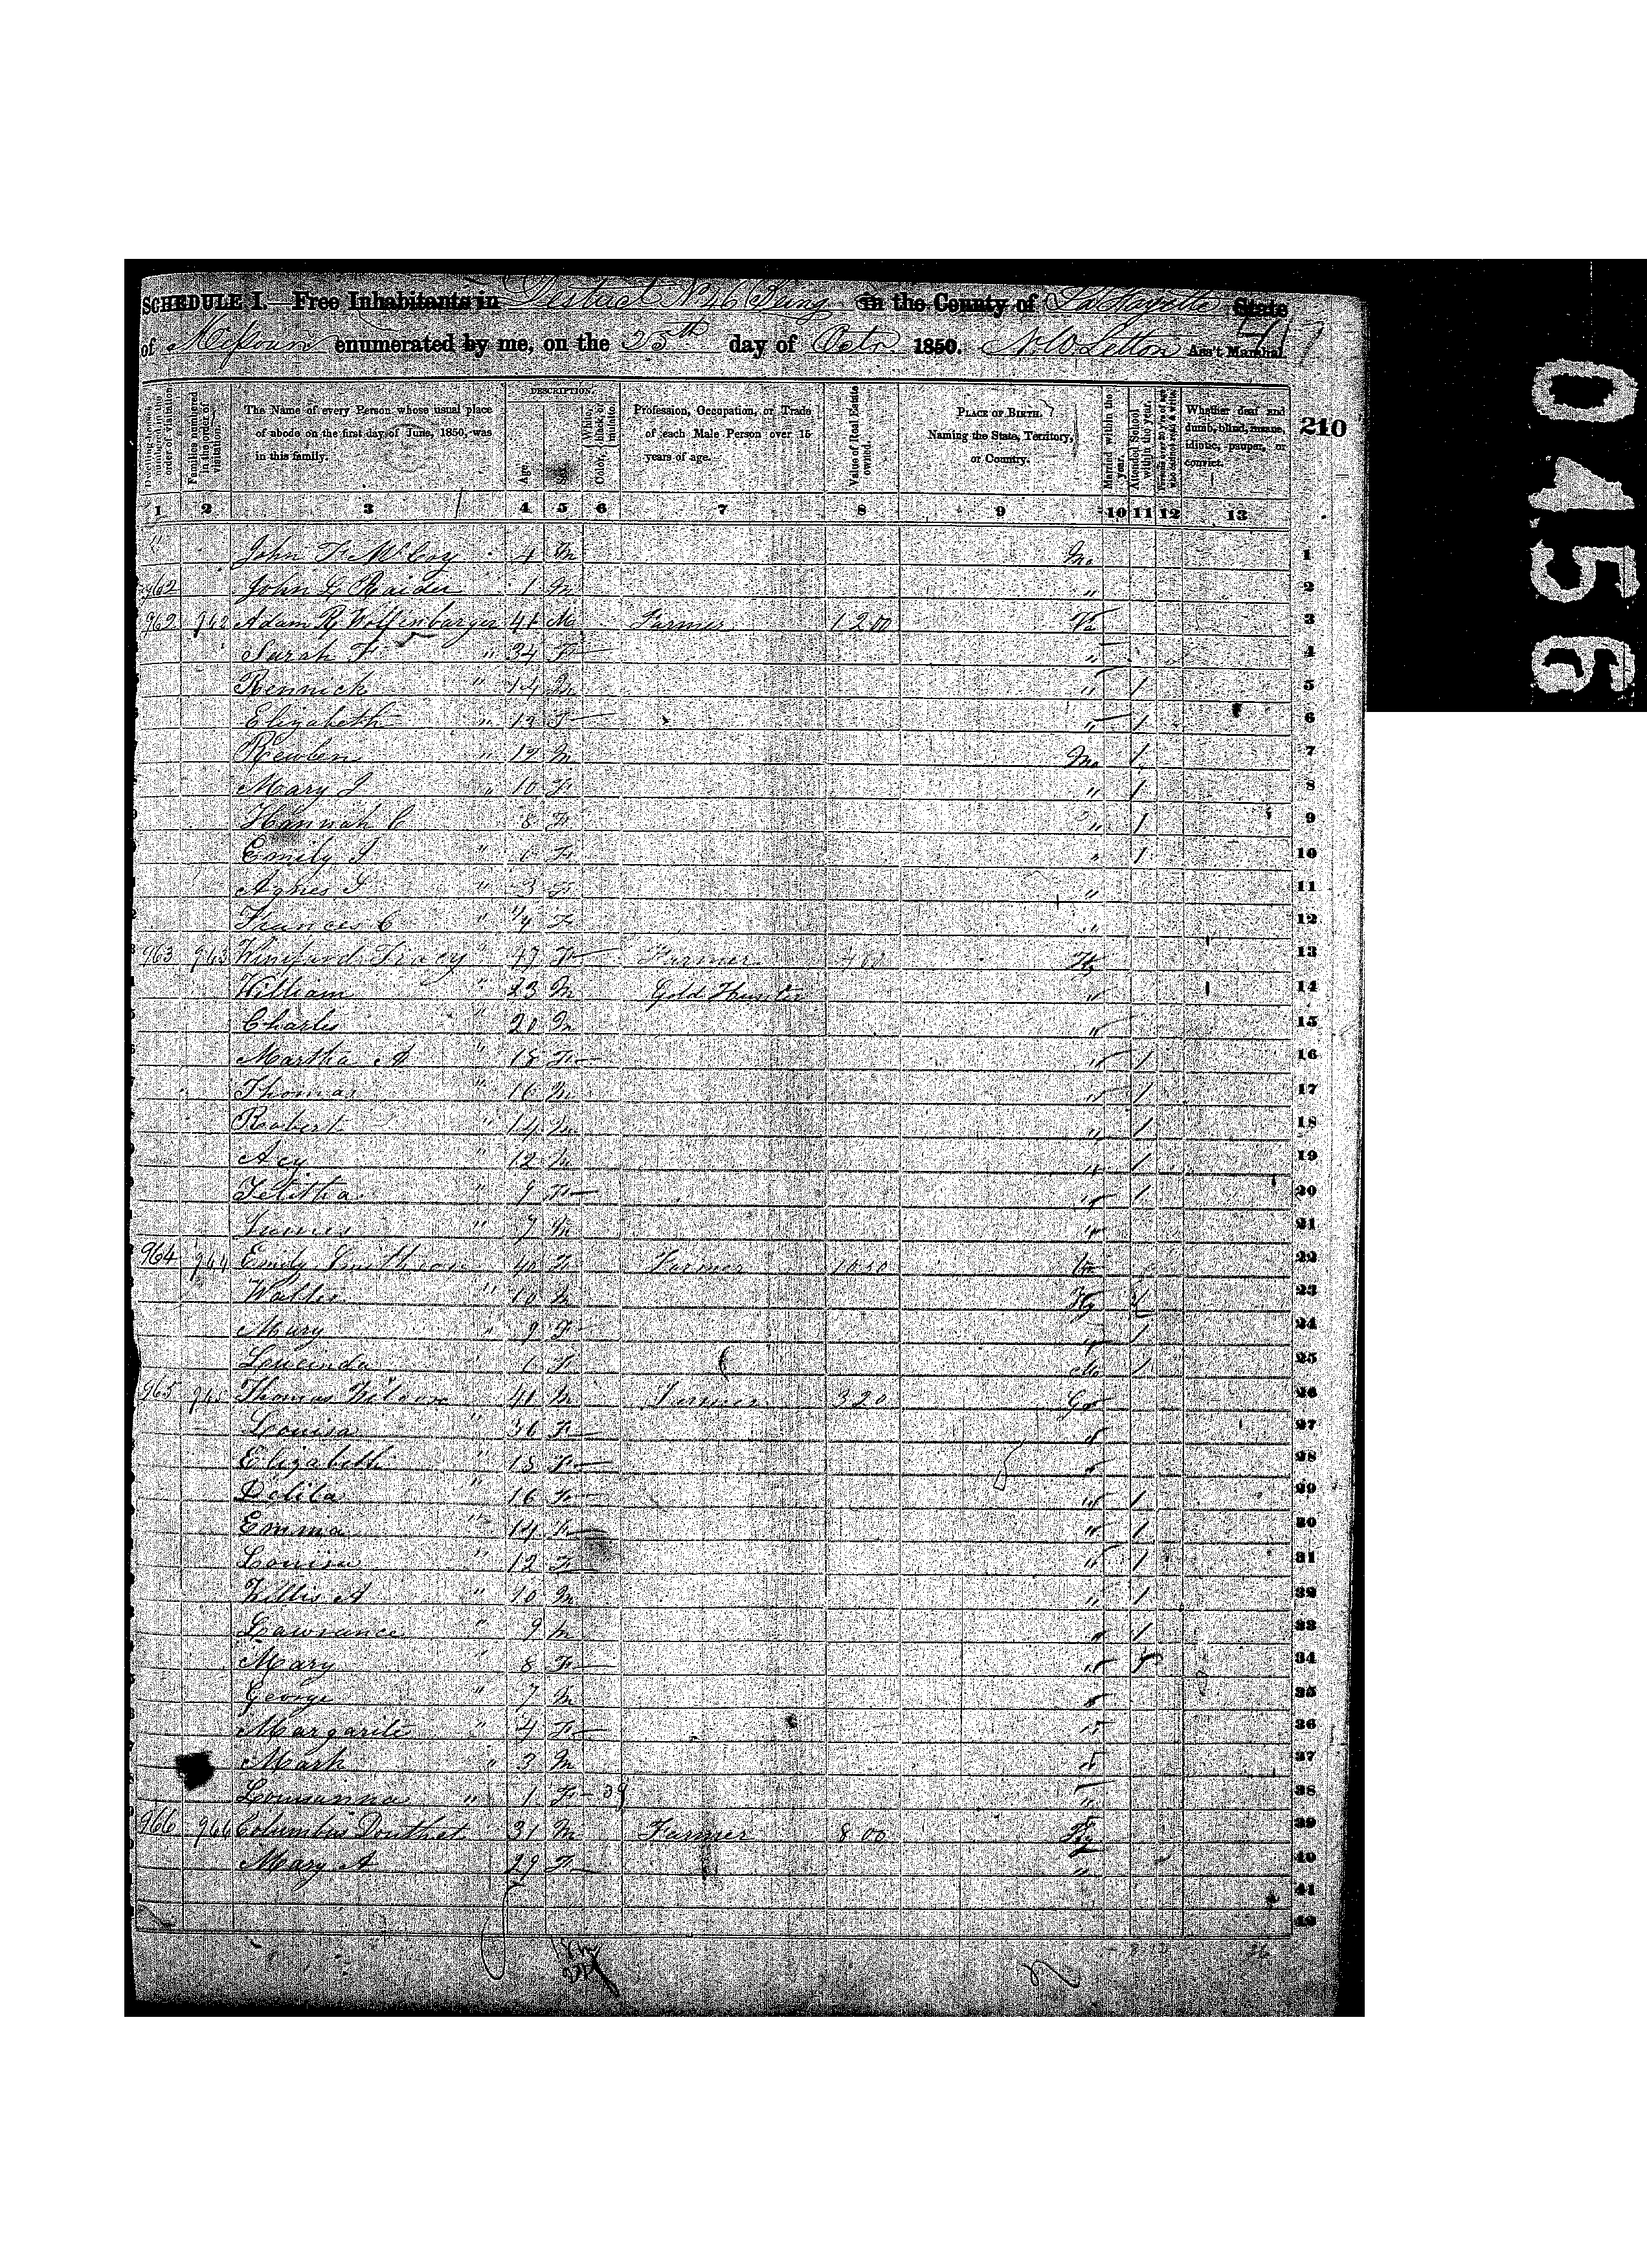 SCHEDULE I.—Free Inhabitants in District No 46 in the County of La Fayette State
of Missouri enumerated by me, on the 25th day of Octr. 1850. N. O. Letton Ass't Marshal.
Dwelling-houses numbered in the order of visitation.
Families numbered in the order of visitation.
The Name of every Person whose usual place of abode on the first day of June, 1850, was in this family.
DESCRIPTION.
Age.
Sex.
Color, {White, black, or mulatto.
Profession, Occupation, or Trade of each Male Person over 15 years of age.
Value of Real Estate owned.
PLACE OF BIRTH. Naming the State, Territory, or Country.
Married within the year.
Attended School within the year.
Persons over 20 y'rs of age who cannot read & write.
Whether deaf and dumb, blind, insane, idiotic, pauper, or convict.
210
1 2 3 4 5 6 7 8 9 10 11 12 13
" John F McCoy 4 M Mo 1
962 John L Raider 1 M " 2
962 962 Adam R Wolfenbarger 41 M Farmer 1200 Va 3
Sarah F " 34 F " 4
Rennick " 14 M " 1 5
Elizabeth " F " 1 6
Reuben " 12 M Mo 1 7
Mary J " 10 F " 1 8
Hannah C 8 F " 1 9
Emily S " 6 F " 1 10
Agnes S " 3 F " 11
Frances C " 1/4 F " 12
963 963 Winifred Tracy 47 F Farmer Ky 13
William " 23 M Gold Hunter " 14
Charles " 20 M " 15
Martha A " 18 F " 1 16
Thomas " 16 M " 1 17
Robert " 14 M " 1 18
Acy " 12 M " 1 19
Telitha " 9 F " 1 20
James " 7 M " 21
964 964 Emily Smithson 40 F Farmer 22
" 10 M Ky 1 23
Mary " 9 F " 1 24
Leucinda " 6 F Mo 1 25
965 965 Thomas 41 M Farmer 320 Go 26
Louisa " 36 F " 27
Elizabeth " 18 F " 28
Delila " 16 F " 1 29
Emma " 14 F " 1 30
Louisa " 12 F " 1 31
Willis A " 10 M " 1 32
Lawrance " 9 M " 1 33
Mary " 8 F " 1 34
George " 7 M " 35
Margarite " 4 F " 36
Mark " 3 M " 37
Louisanna " 1 F " 38
966 966 Columbus Douthet 31 M Farmer 800 Ky 39
Mary A 29 F " 40
41
42
0456